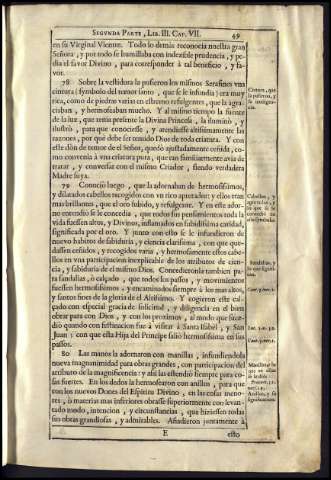 SEGVNDA PARTE, LIB. III. CAP. VII. 49
en su Virginal Vientre. Todo lo demás reconocia nuestra gran
Señora, y por todo se humillaba con indecible prudencia, y pe-
dia el favor Divino, para corresponder à tal beneficio, y fa-
vor.
78 Sobre la vestidura la pusieron los mismos Serafines vna
cintura (symbolo del temor santo, que se le infundia) era muy
rica, como de piedras varias en estremo refulgentes, que la agra-
ciaban, y hermoseaban mucho. Y al mismo tiempo la fuente
de la luz, que tenia presente la Divina Princesa, la iluminò, y
ilustrò, para que conociesse, y atendiesse altissimamente las
razones, por que debe ser temido Dios de toda criatura. Y con
este dòn de temor de el Señor, quedò ajustadamente ceñida, co-
mo convenia à vna criatura pura, que tan familiarmente avia de
tratar, y conversar con el mismo Criador, siendo verdadera
Madre suya.
79 Conociò luego, que la adornaban de hermosissimos,
y dilatados cabellos recogidos con vn rico apretador: y ellos eran
mas brillantes, que el oro subido, y refulgente. Y en este ador-
no entendiò se le concedia, que todos sus pensamientos toda la
vida fuessen altos, y Divinos, inflamados en subidissima caridad,
significada por el oro. Y junto con esto se le infundieron de
nuevo habitos de sabiduria, y ciencia clarissima, con que que-
dassen ceñidos, y recogidos varia, y hermosamente estos cabe-
llos en vna participacion inexplicable de los atributos de cien-
cia, y sabiduria de el mismo Dios. Concedieronla tambien pa-
ra sandalias, ò calçado, que todos los passos, y movimientos
fuessen hermosissimos, y encaminados siempre à los mas altos,
y santos fines de la gloria de el Altissimo. Y cogieron este cal-
çado con especial gracia de solicitud, y diligencia en el bien
obrar para con Dios, y con los proximos, al modo que suce-
diò quando con festinacion fue à visitar à Santa Isabèl, y San
Juan; con que esta Hija del Principe saliò hermosissima en sus
passos.
80 Las manos la adornaron con manillas, infundiendola
nueva magnanimidad para obras grandes, con participacion del
atributo de la magnificencia: y assi las estendiò siempre para co-
sas fuertes. En los dedos la hermosearon con anillos, para que
con los nuevos Dones del Espiritu Divino, en las cosas meno-
res, ò materias mas inferiores obrasse superiormente con levan-
tado modo, intencion, y circunstancias, que hiziessen todas
sus obras grandiosas, y admirables. Añadieron juntamente à
E esto
Cintura, que
la pusieron, y
su
Cabellos, y
Sandalias, y
Cant. 7. vers. 1.
Luc. 1. v. 39.
Cant. 7. vers. 1.
Anillos, y su
significacion.